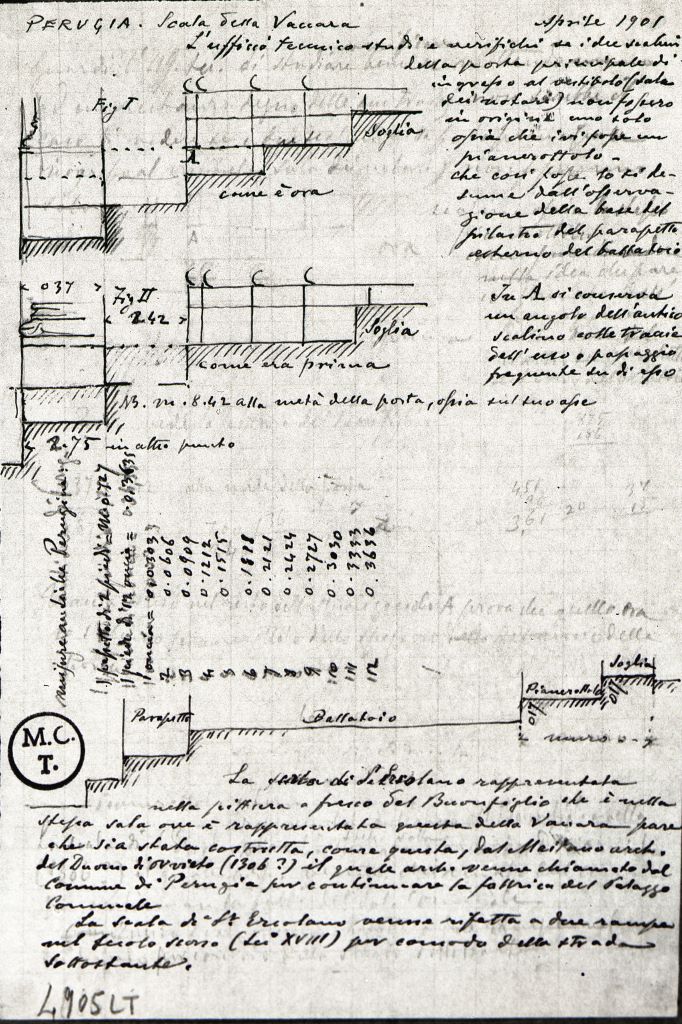 PERUGIA. Scala della Vaccara Aprile 1901
L'ufficio tecnico studi e verifichi se i due scalini
della porta principale di
ingresso al vestibolo (sala
dei notari) non fossero
in origine uno solo
ossia che ivi fosse un
pianerottolo -
che così fosse lo si de-
sume dall'osserva-
zione della base del
pilastro del parapetto
esterno del ballatoio
Fig I
Soglia
A
come è ora
In A si conserva
un angolo dell'antico
scalino colle traccie
dell'uso o passaggio
frequente su di esso
0 37
Fig II
2.42
Soglia
come era prima
NB. m. 8.42 alla metà della porta, ossia sul suo asse
2.75 in altro punto
misure antiche Perugine
piede di 12 oncie = 0.03635
1 oncia = 0.03033
2 0.0606
3 0.0909
4 0.1212
5 0.1515
6 0.1818
7 0.2121
8 0.2424
9 0.2727
10 0.3030
11 0.3333
12 0.3636
Parapetto
Ballatoio
Pianerottolo
Soglia
M.C.
T.
La scala di S. Ercolano rappresentata
nella pittura a fresco del Buonfiglio che è nella
stessa sala ove è rappresentata questa della Vaccara pare
che sia stata costrutta, come questa, dal Maitano arch.
del Duomo di Orvieto (1306?) il quale arch. venne chiamato dal
Comune di Perugia per continuare la fabbrica del Palazzo
Comunale
La scala di St Ercolano venne rifatta a due rampe
nel secolo scorso (Sec XVIII) per comodo della strada
sottostante.
L905LT